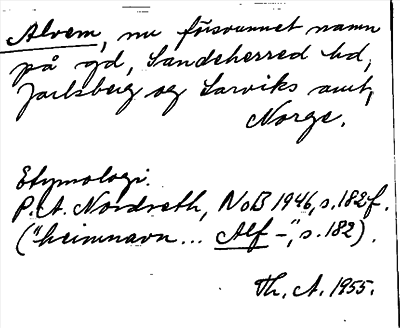 Alvem, nu försvunnet namn
på gd, Sandeherred hd,
Jarlsberg og Larviks amt,
Norge.
Etymologi.
P. A. Nordseth, NoB 1946, s. 182f.
("heimnavn... Alf-", s. 182).
Th. A. 1955.